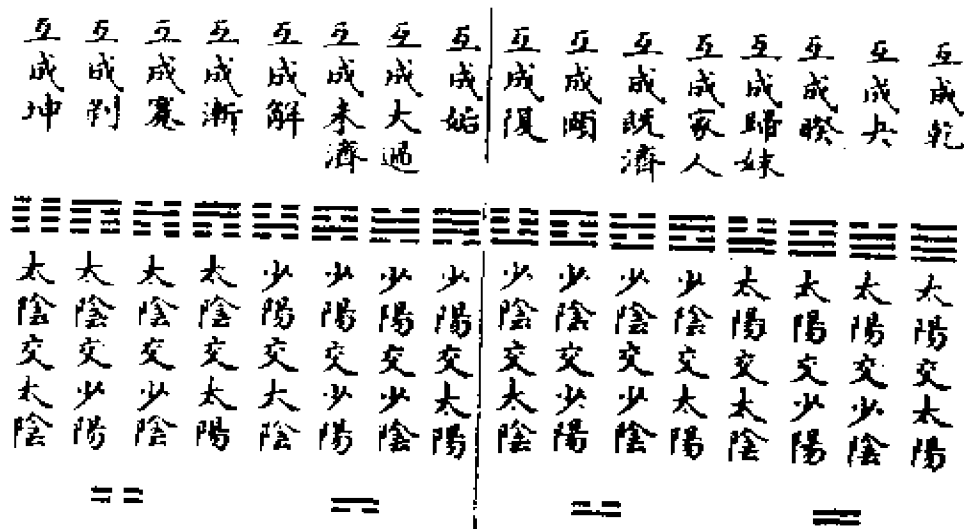 互成乾
互成夬
互成睽
互成歸妹
互成家人
互成既濟
互成頤
互成復
互成姤
互成大過
互成未濟
互成解
互成漸
互成蹇
互成剝
互成坤
太陽交太陽
太陽交少陰
太陽交少陽
太陽交太陰
少陰交太陽
少陰交少陰
少陰交少陽
少陰交太陰
少陽交太陽
少陽交少陰
少陽交少陽
少陽交大陰
太陰交太陽
太陰交少陰
太陰交少陽
太陰交太陰